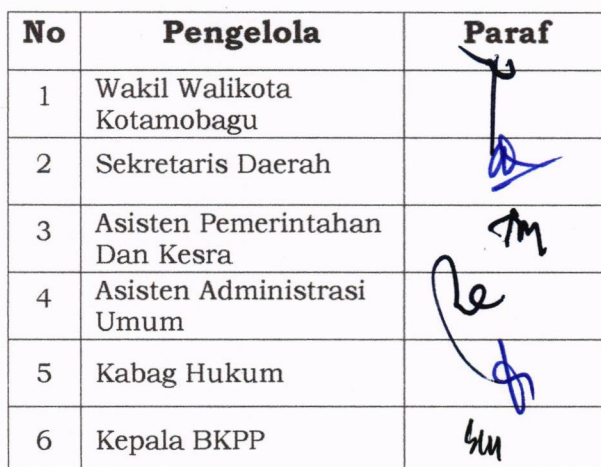 No Pengelola Paraf
1 Wakil Walikota
Kotamobagu
2 Sekretaris Daerah
3 Asisten Pemerintahan
Dan Kesra
4 Asisten Administrasi
Umum
5 Kabag Hukum
6 Kepala BKPP